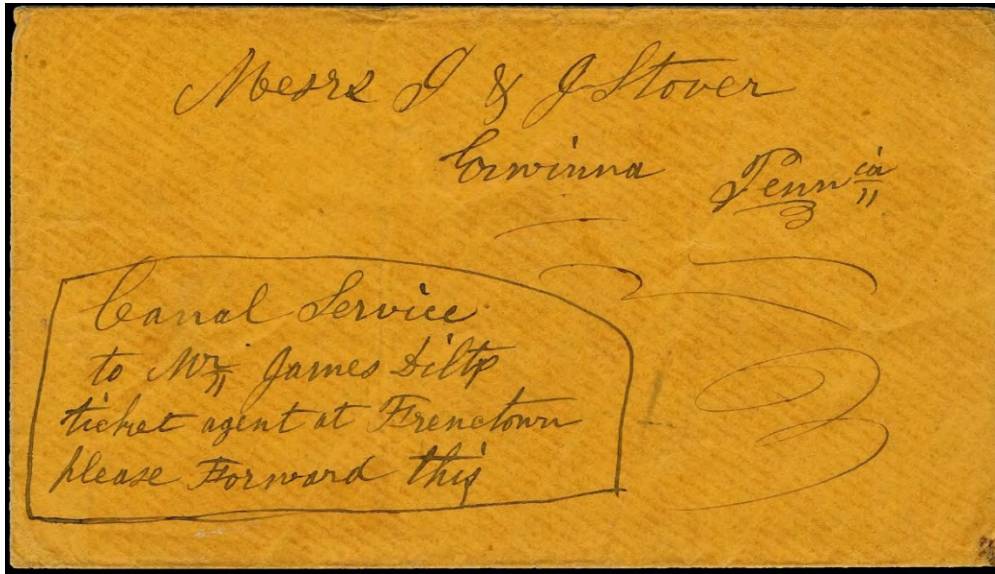 Mesrs J & J Stover
Erwinna Pennia
Canal Service
to Mr James Dilts
ticket agent at Frenctown
please Forward this